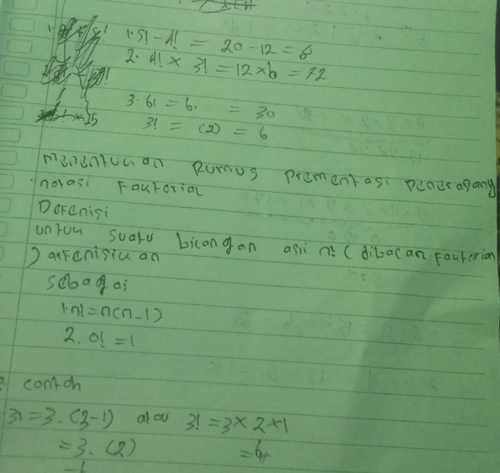 1. 5! - 4! = 20 - 12 = 8
2. 4! × 3! = 12 × 6 = 72
3. 6! = 6. = 30
3! = (2) = 6
menentukan Rumus prementasi
notasi Faktorial
Defenisi
untuk suatu bilangan asli n! (dibacan Faktorial
) defenisikan
Sebagai
1. n! = n(n-1)
2. 0! = 1
contoh
3! = 3. (3-1) atau 3! = 3 × 2 × 1
= 3. (2) = 6